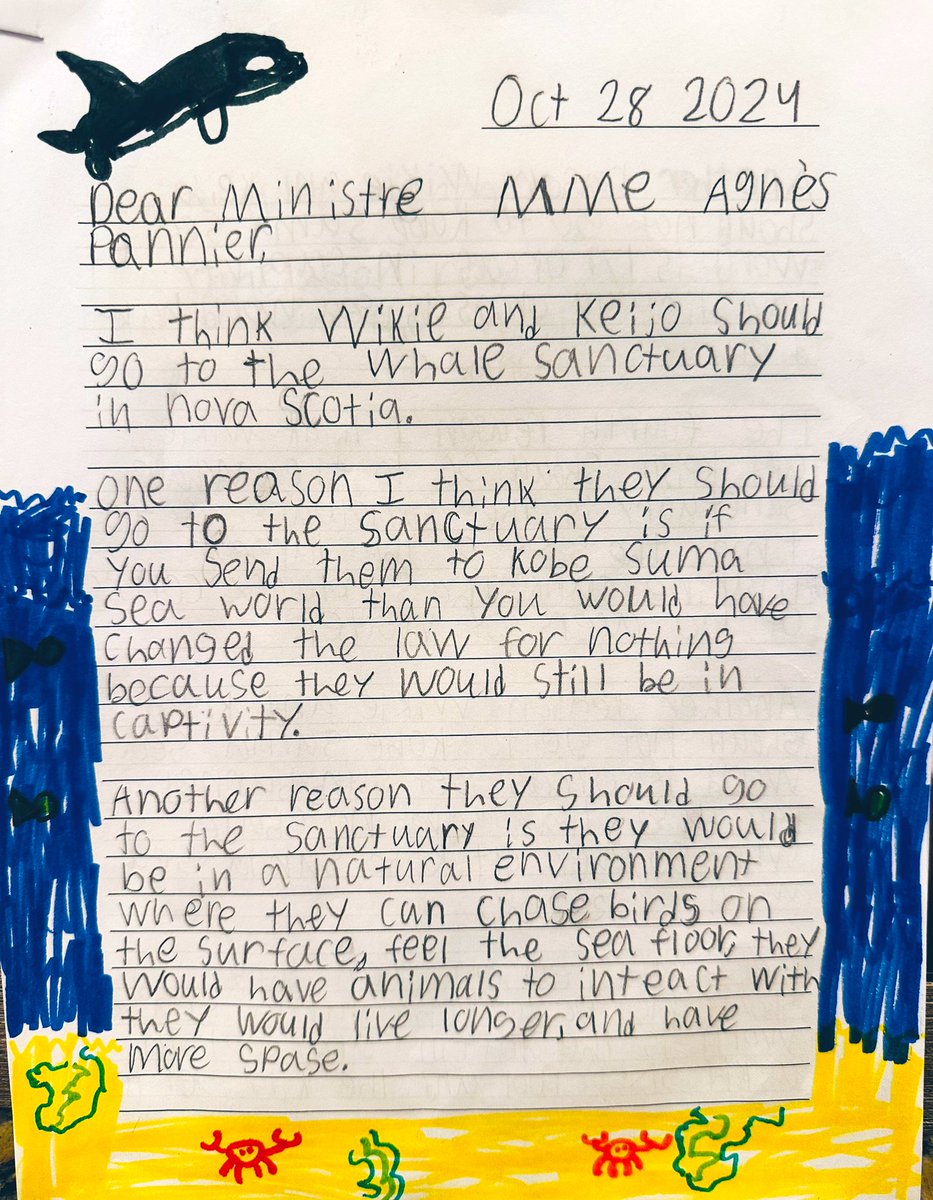 Oct 28 2024
Dear Ministre MMe Agnès
Pannier,
I think Wikie and Keijo should
go to the whale sanctuary
in nova scotia.
one reason I think they should
go to the sanctuary is if
you send them to Kobe suma
sea world than you would have
changed the law for nothing
because they would still be in
captivity.
Another reason they should go
to the sanctuary is they would
be in a natural environment
where they can chase birds on
the surface, feel the sea floor, they
would have animals to inteact with
they would live longer, and have
more spase.